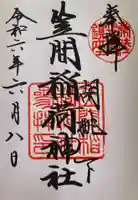 奉拝
胡桃下
笠間稲荷神社
令和六年六月八日